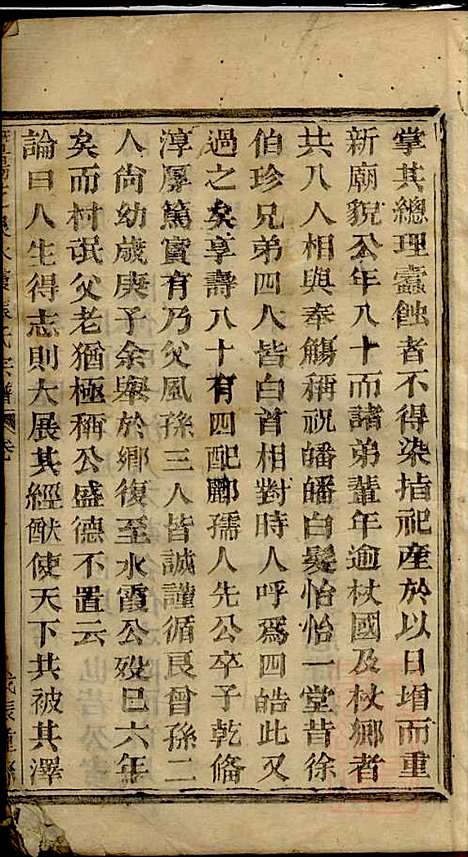 掌其總理蠹蝕者不得染指祀產於以日增而重
新廟貌公年八十而諸弟輩年逾杖國及杖鄉者
共八人相與奉觴稱祝皤皤白髮怡怡一堂昔徐
伯珍兄弟四人皆白首相對時人呼爲四皓此又
過之矣享壽八十有四配酈孺人先公卒子乾脩
淳厚篤實有乃父風孫三人皆誠謹循良曾孫二
人尙幼歲庚子余舉於鄉復至水霞公歿已六年
矣而村氓父老猶極稱公盛德不置云
論曰人生得志則大展其經猷使天下共被其澤
張氏宗譜